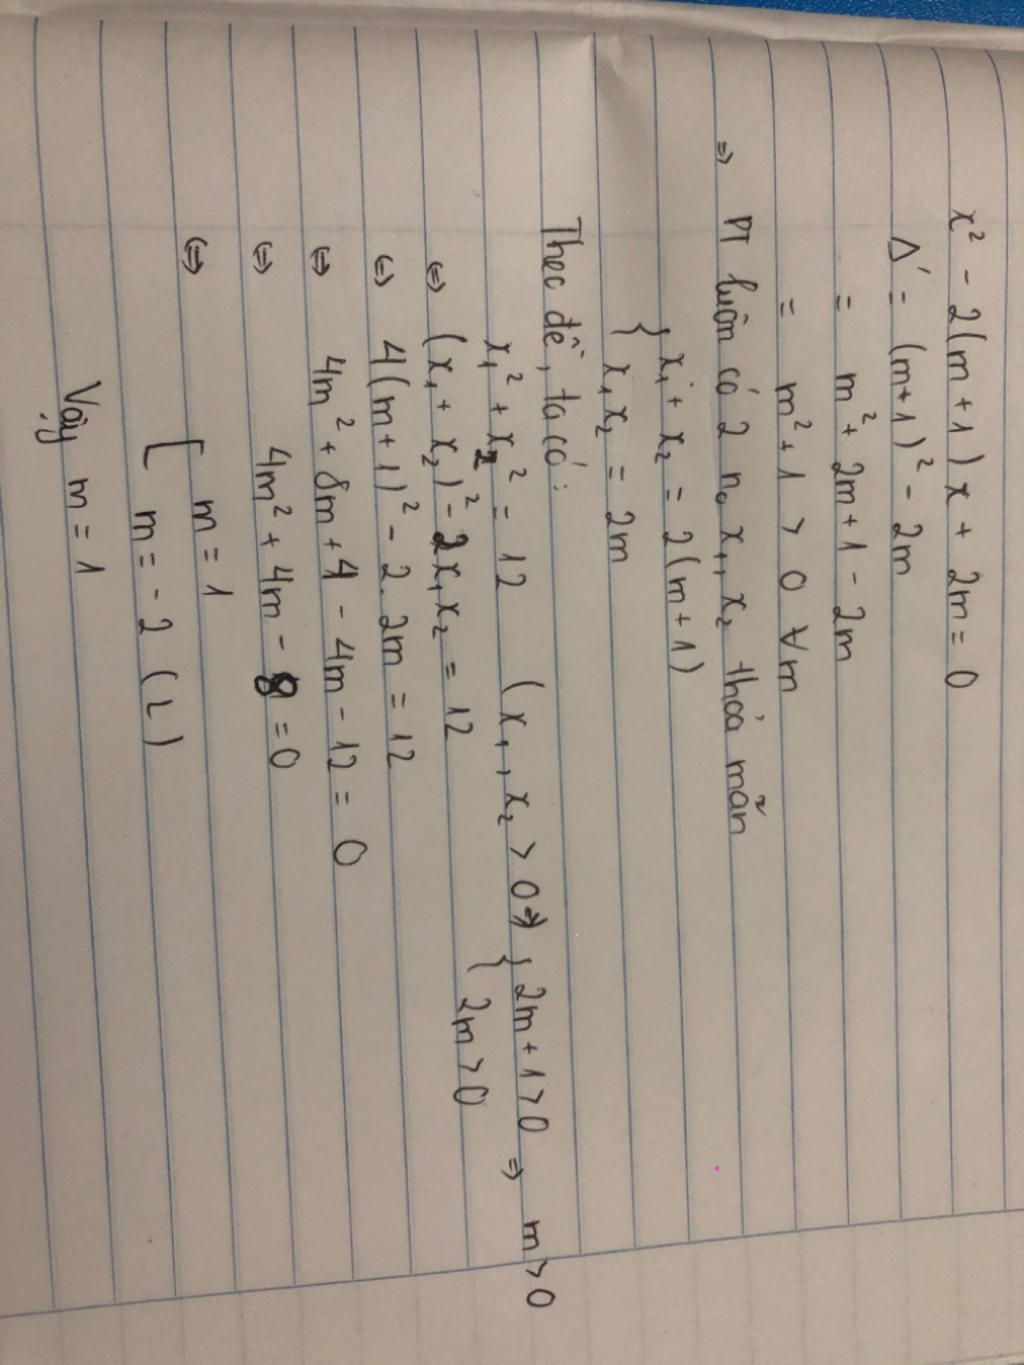 x² - 2(m+1)x + 2m = 0
Δ' = (m+1)² - 2m
= m² + 2m + 1 - 2m
= m² + 1 > 0 ∀m
=> PT luôn có 2 n₀ x₁, x₂ thỏa mãn
{ x₁ + x₂ = 2(m+1)
x₁x₂ = 2m
Theo đề, ta có:
x₁² + x₂² = 12 (x₁, x₂ > 0 => { 2m + 1 > 0 => m > 0
2m > 0
<=> (x₁ + x₂)² - 2x₁x₂ = 12
<=> 4(m+1)² - 2.2m = 12
<=> 4m² + 8m + 4 - 4m - 12 = 0
<=> 4m² + 4m - 8 = 0
<=> [ m = 1
m = -2 (L)
Vậy m = 1